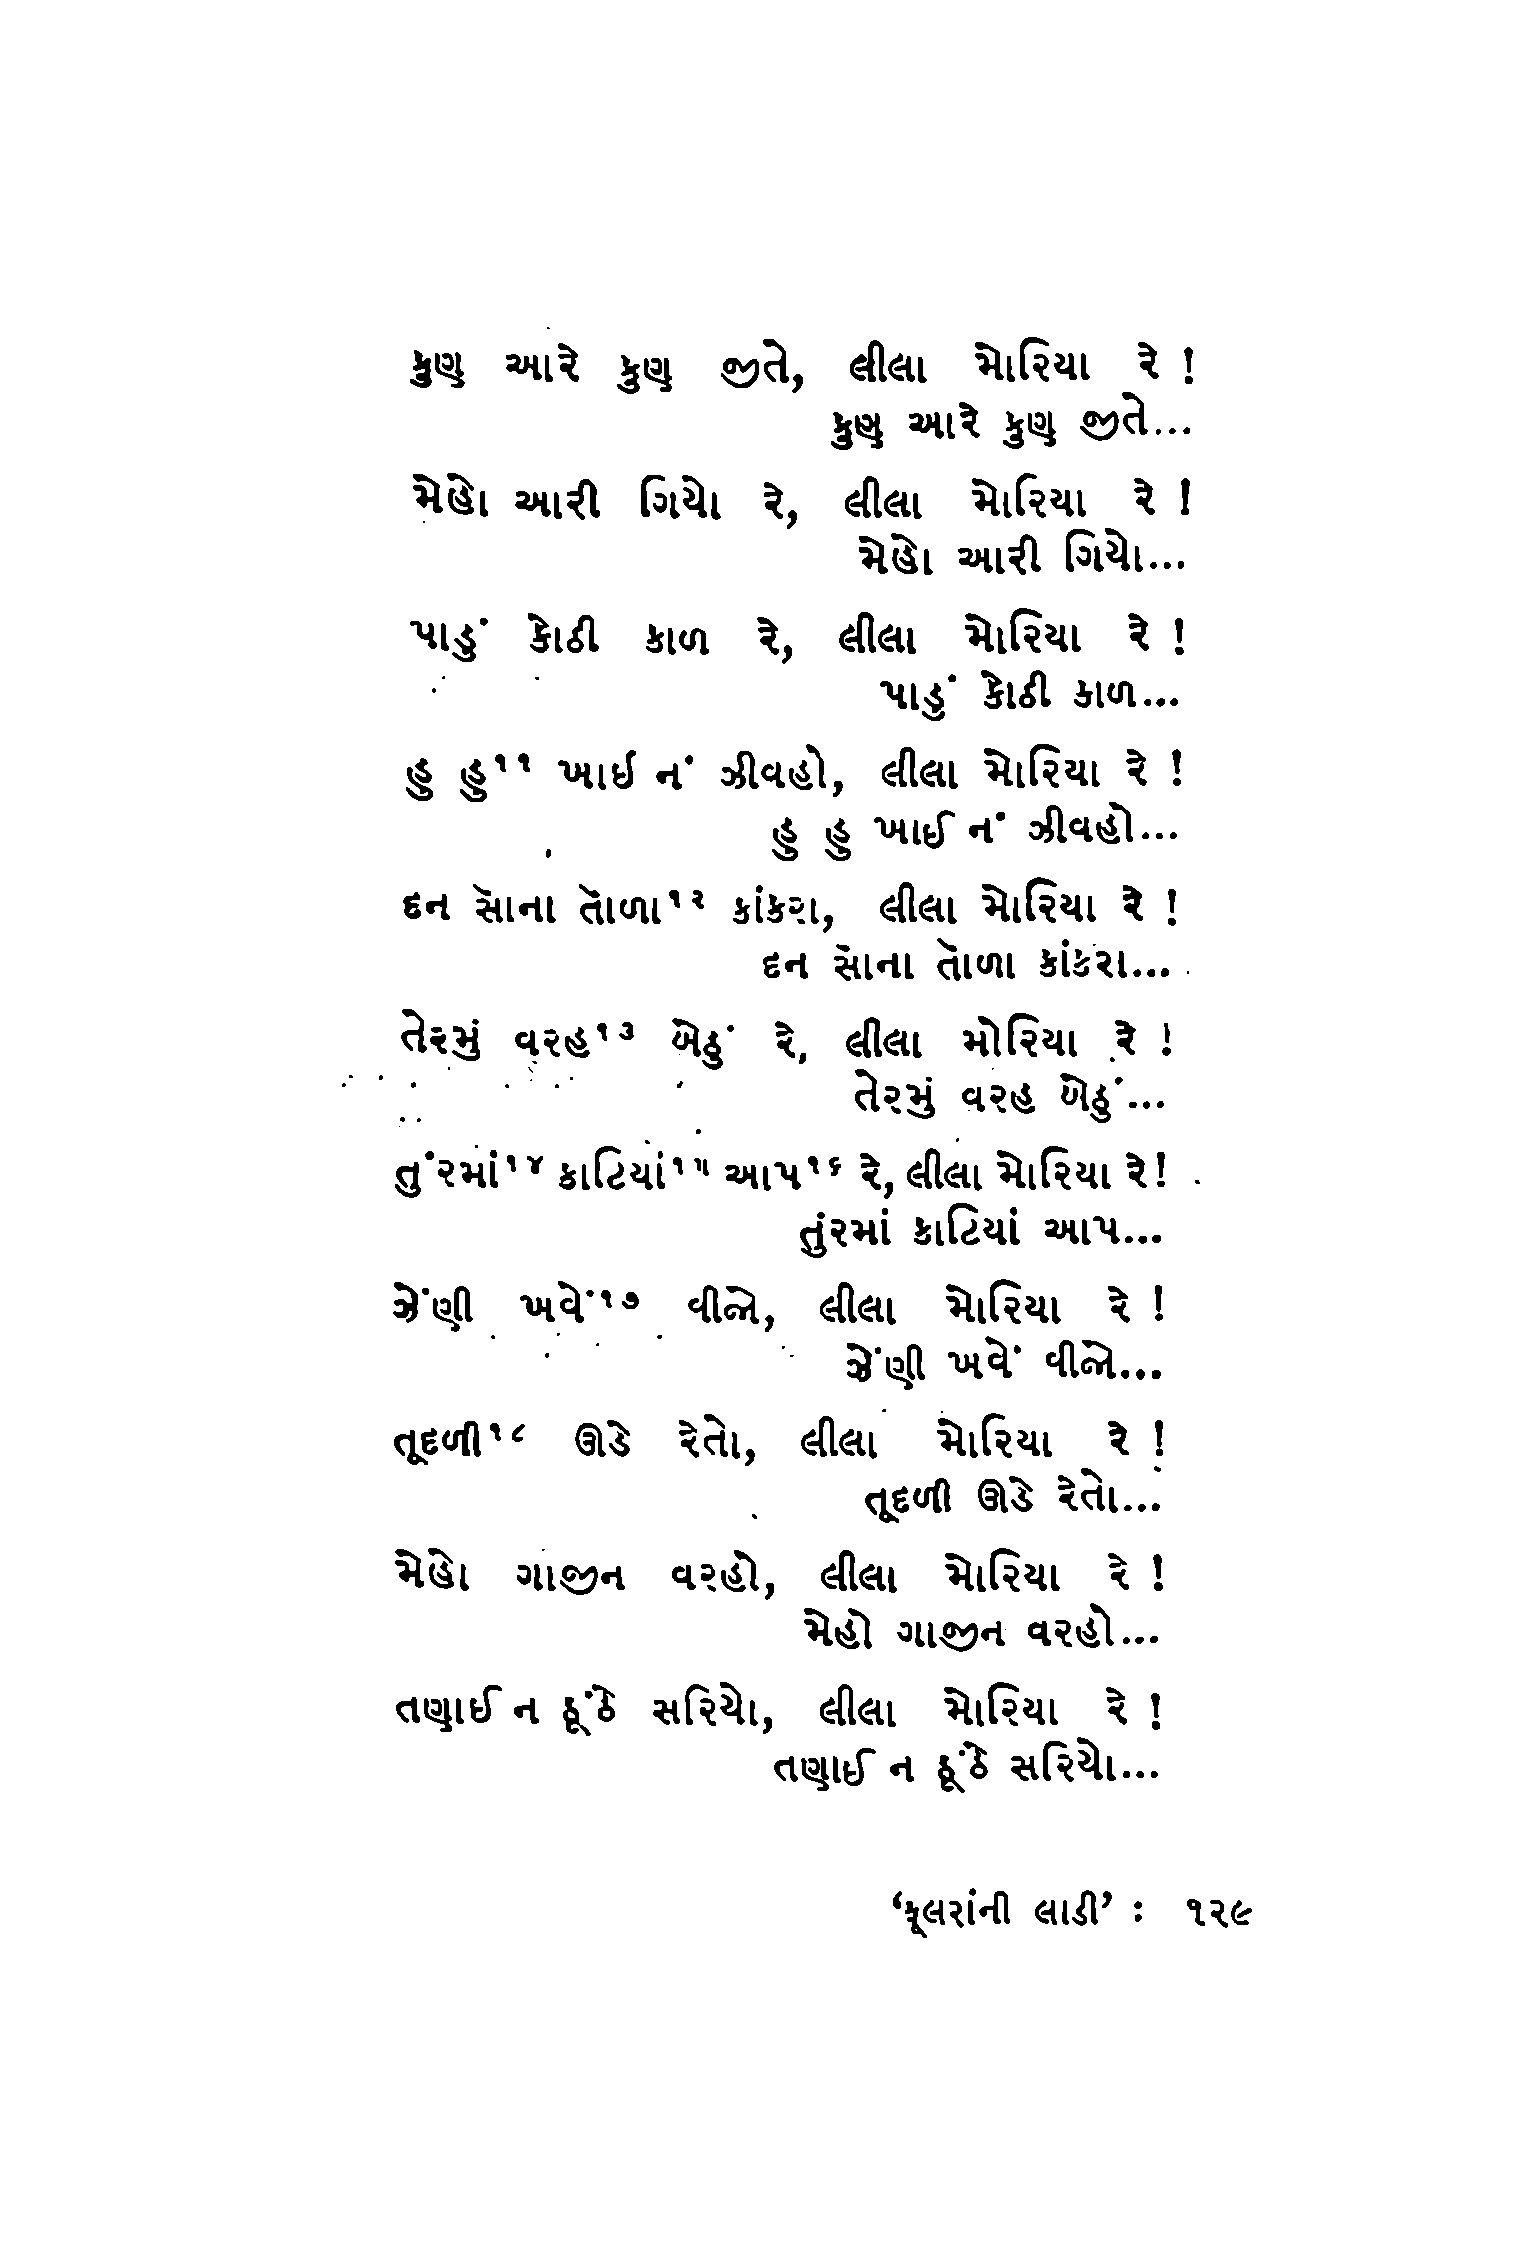 કુણ આરે કુણ જીતે, લીલા મોરિયા રે !
કુણ આરે કુણ જીતે...
મેહો આરી ગિયો રે, લીલા મોરિયા રે !
મેહો આરી ગિયો...
પાડું કોઠી કાળ રે, લીલા મોરિયા રે !
પાડું કોઠી કાળ...
હુ હુ૧૧ ખાઈ નં ઝીવહો, લીલા મોરિયા રે !
હુ હુ ખાઈ નં ઝીવહો...
દન સૅાના તૅાળા૧૨ કાંકરા, લીલા મોરિયા રે !
દન સૅાના તૅાળા કાંકરા...
તેરમું વરહ૧૩ બેઠું રે, લીલા મોરિયા રે !
તેરમું વરહ બેઠું...
તુંરમાં૧૪ કાટિયાં૧૫ આપ૧૬ રે, લીલા મોરિયા રે!
તુંરમાં કાટિયાં આપ...
ઝેંણી ખવેં૧૭ વીજો, લીલા મોરિયા રે !
ઝેંણી ખવેં વીજો...
તૂદળી૧૮ ઊડે રેતો, લીલા મોરિયા રે !
તૂદળી ઊડે રેતો...
મેહો ગાજીન વરહો, લીલા મોરિયા રે !
મેહો ગાજીન વરહો...
તણાઈ ન ઠૂંઠે સરિયો, લીલા મોરિયા રે !
તણાઈ ન ઠૂંઠે સરિયો...
‘ફૂલરાંની લાડી’ : ૧૨૯